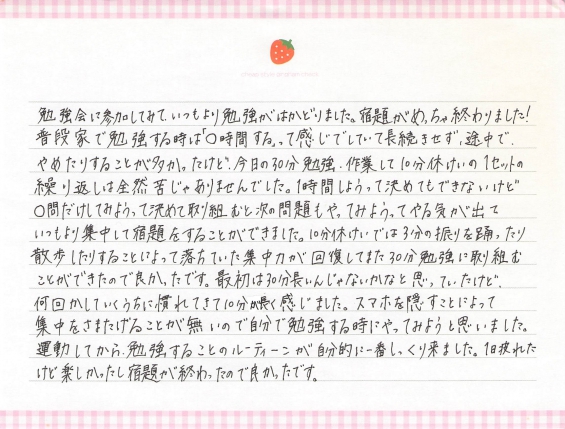 勉強会に参加してみて、いつもより勉強がはかどりました。宿題がめっちゃ終わりました！
普段家で勉強する時は「〇時間する」って感じでしていて長続きせず、途中で、
やめたりすることが多かったけど、今日の30分勉強、作業して10分休けいの1セットの
繰り返しは全然苦じゃありませんでした。1時間しようって決めてもできないけど
〇問だけしてみようって決めて取り組むと次の問題もやってみようってやる気が出て
いつもより集中して宿題をすることができました。10分休けいでは3分の振りを踊ったり
散歩したりすることによって落ちていた集中力が回復してまた30分勉強に取り組む
ことができたので良かったです。最初は30分長いんじゃないかなと思っていたけど、
何回かしていくうちに慣れてきて10分が長く感じました。スマホを隠すことによって
集中をさまたげることが無いので自分で勉強する時にやってみようと思いました。
運動してから、勉強することのルーティーンが自分的に一番しっくり来ました。1日疲れた
けど楽しかったし宿題が終わったので良かったです。